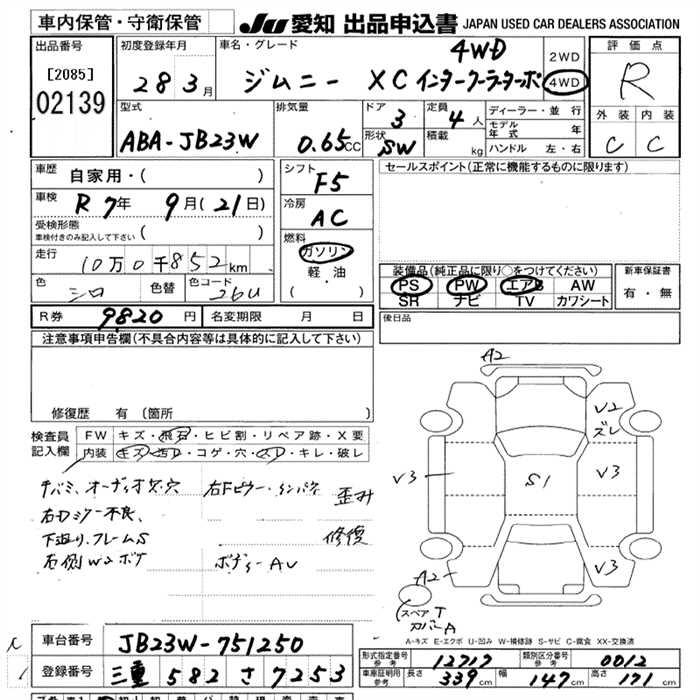 車内保管・守衛保管 JU 愛知 出品申込書 JAPAN USED CAR DEALERS ASSOCIATION
出品番号 [2085] 02139
初度登録年月 28 3月
車名・グレード ジムニー XC インタークーラーターボ 4WD
2WD 4WD
評価点 R
外装 内装 C C
型式 ABA-JB23W
排気量 0.65CC
ドア 3 形状 SW
定員 4人 積載 kg
ディーラー・並行
モデル年式 年
ハンドル 左・右
車歴 自家用・( )
車検 R 7年 9月(21日)
受検形態 車検付きのみ記入して下さい ( )
走行 10万0千852km
色 シロ 色替 色コード 26U
シフト F5
冷房 AC
燃料 ガソリン 軽・油 ( )
セールスポイント(正常に機能するものに限ります)
装備品(純正品に限り○をつけてください)
PS PW エアB AW
SR ナビ TV カワシート
新車保証書 有・無
後日品
R券 9820円 名変期限 月 日
注意事項申告欄(不具合内容等は具体的に記入して下さい)
修復歴 有 〔箇所
検査員記入欄
FW キズ・飛石・ヒビ割・リペア跡・X要
内装 キズ・汚レ・コゲ・穴・スレ・キレ・破レ
右Fピラー・インパネ 歪み
右Dミラー不良、
下廻り、フレームS 修復
右側W2ボデ ボディーAU
A2
V2
ズレ
V3 S1 V3
A2 V3
スペアT
カバーA
A-キズ E-エクボ U-凹み W-補修跡 S-サビ C-腐食 XX-交換済
車台番号 JB23W-751250
登録番号 三重 582 さ 7253
形式指定番号 参考 12717 類別区分番号 参考 0012
車庫証明用 参考 長さ 339cm 幅 147cm 高さ 171cm